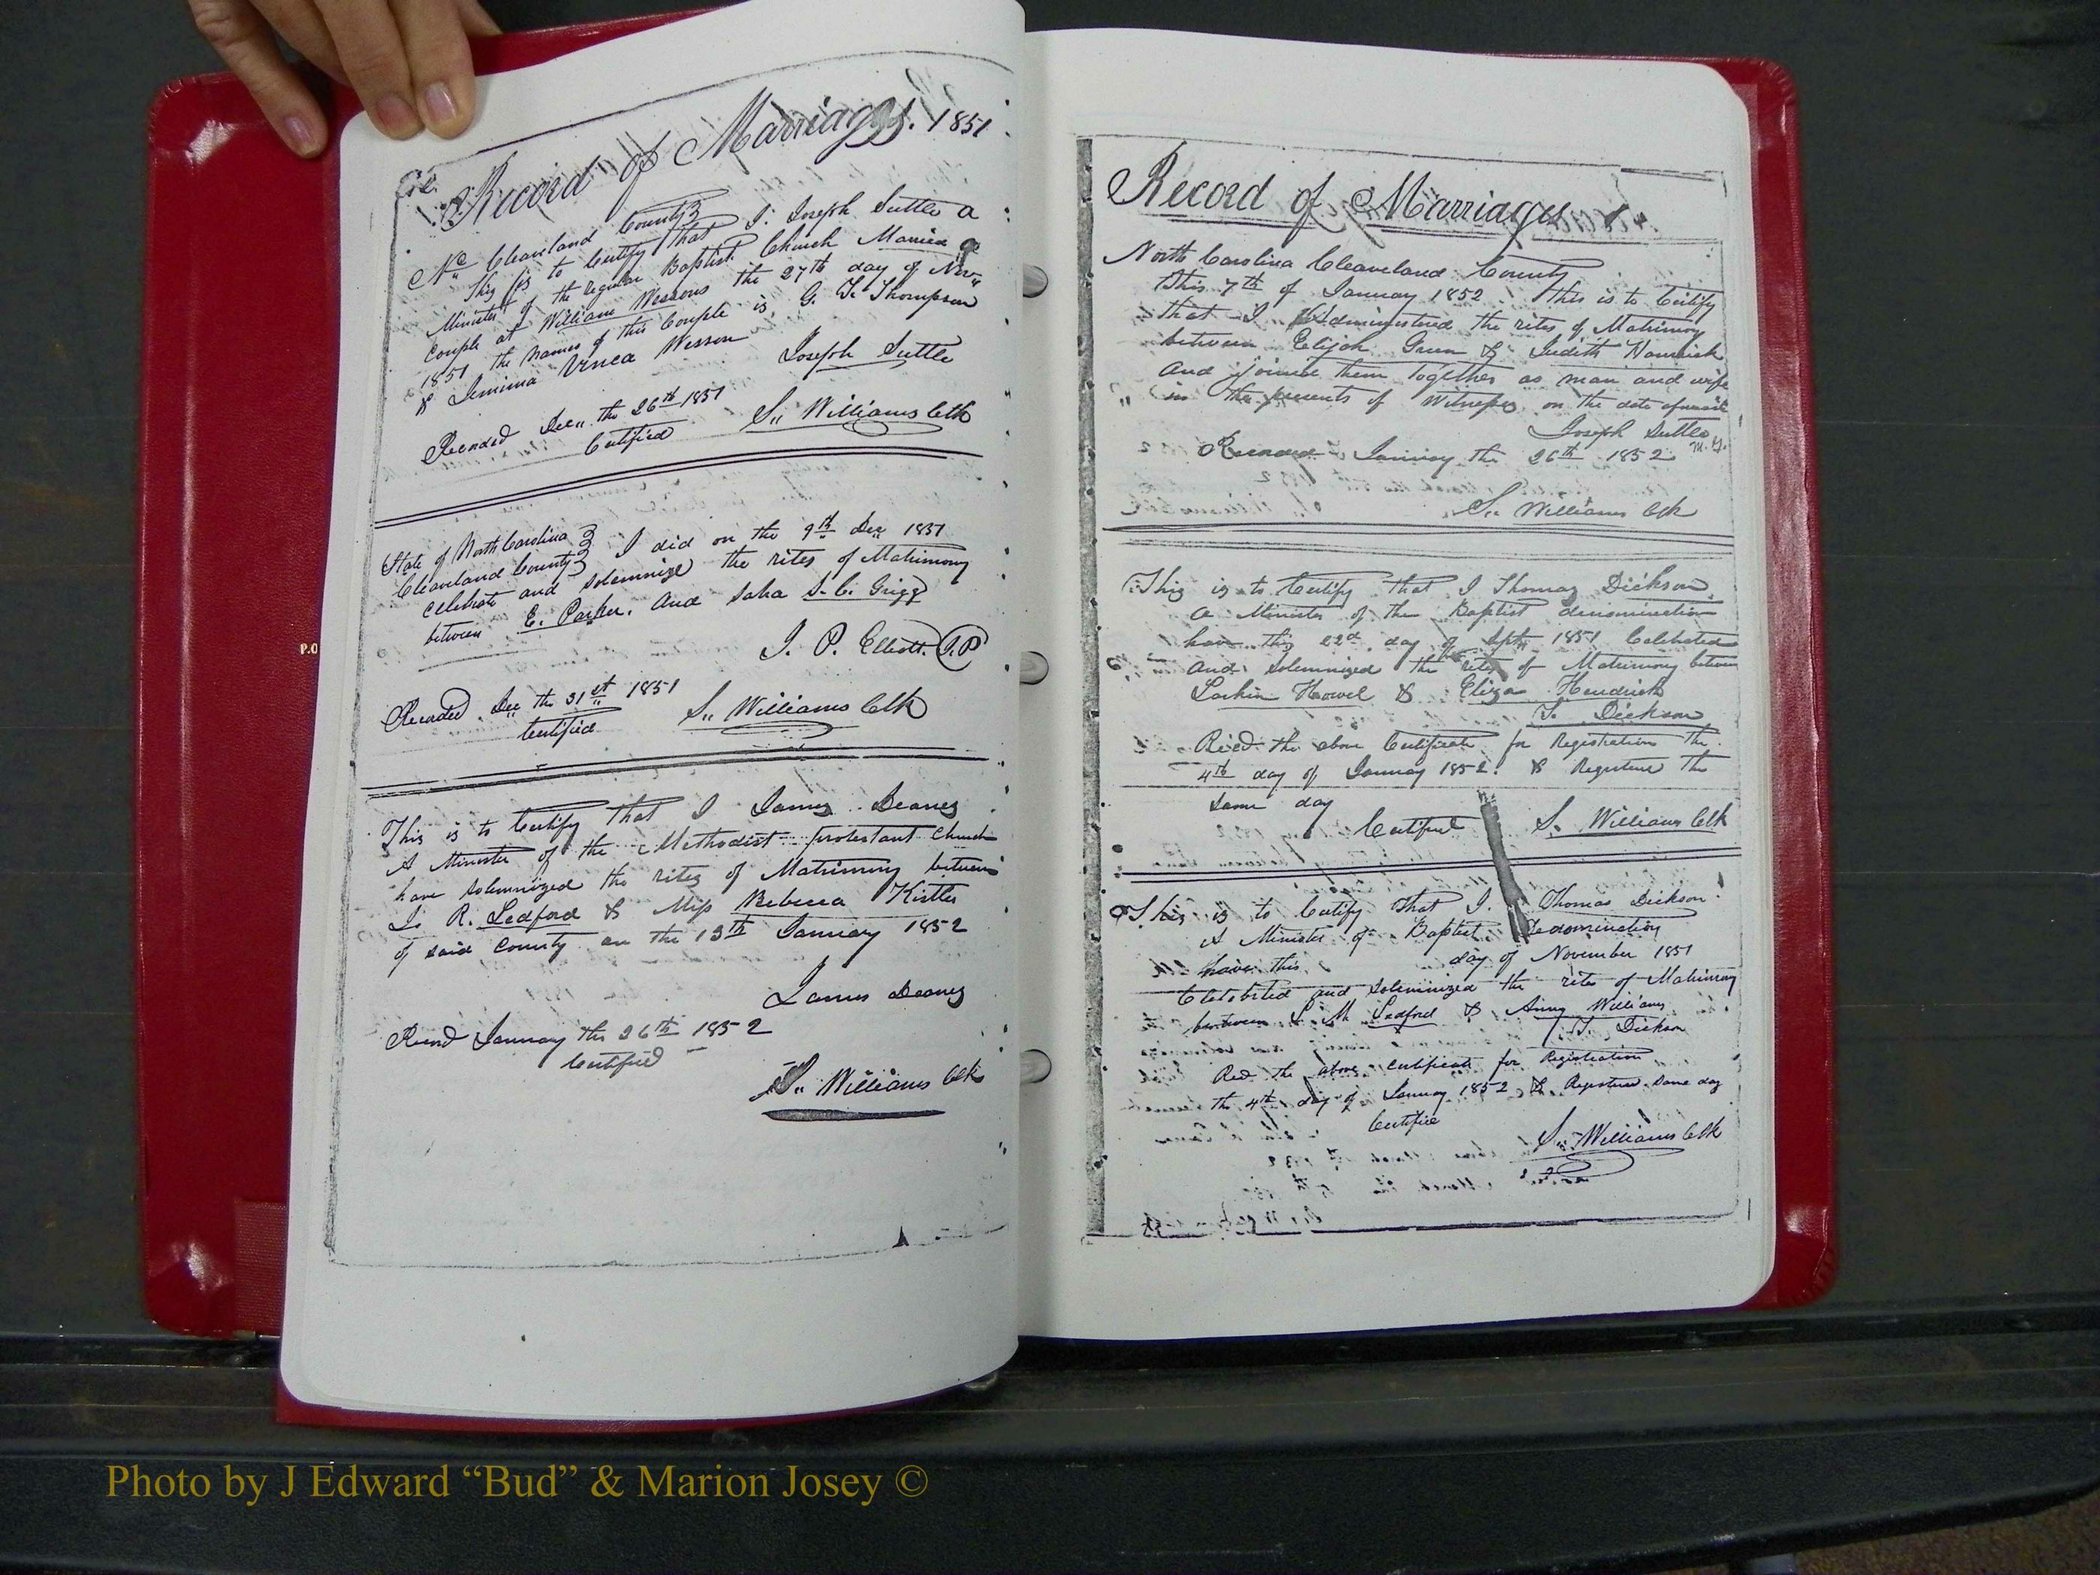 Record of Marriages. 1851
No. Cleaveland County
This is to Certify that I. Joseph Suttle a
Minister of the regular Baptist Church Married a
couple at William Wessons the 27th day of Nov"
1851 the names of this Couple is, G. T. Thompson
& Jemima Wesson
Joseph Suttle
Recorded Dec" the 26th 1851
Certified
S" Williams Clk
State of North Carolina
Cleaveland County I did on the 9th Dec 1851
celebrate and solemnize the rites of Matrimony
between E. Parker. And S. C. Grigg
J. P. Elliott. J.P
Recorded Dec the 31st 1851
Certified
S" Williams Clk
This is to Certify that I James Deaney
A Minister of the Methodist protestant Church
have solemnized the rites of Matrimony between
R. Ledford & Miss Rebecca Kistler
of said County on the 13th January 1852
James Deaney
Record January the 26th 1852
Certified
S" Williams Clk
P.O
Record of Marriages
North Carolina Cleaveland County
This 7th of January 1852. This is to Certify
that I Administered the rites of Matrimony
between Elijah Green & Judith Hamrick
And joined them together as man and wife
in the presents of Witness on the date
Joseph Suttle M. G.
Recorded January the 26th 1852
S" Williams Clk
This is to Certify that I Thomas Dickson
a Minister of the Baptist denomination
have this 22d day of Sept 1851 Celebrated
and solemnized the rites of Matrimony between
Larkin Howel & Eliza Hendrick
T. Dickson
Rec'd the above Certificate for Registration the
4th day of January 1852. & Registerd the
same day
Certified S. Williams Clk
This is to Certify that I. Thomas Dickson
A Minister of Baptist Denomination
have this day of November 1851
Celebrated and solemnized the rites of Matrimony
between M. Ledford & Anny Williams
T. Dickson
Red. the above certificate for Registration
the 4th day of January 1852 & Registered same day
Certified
S" Williams Clk
Photo by J Edward “Bud” & Marion Josey ©